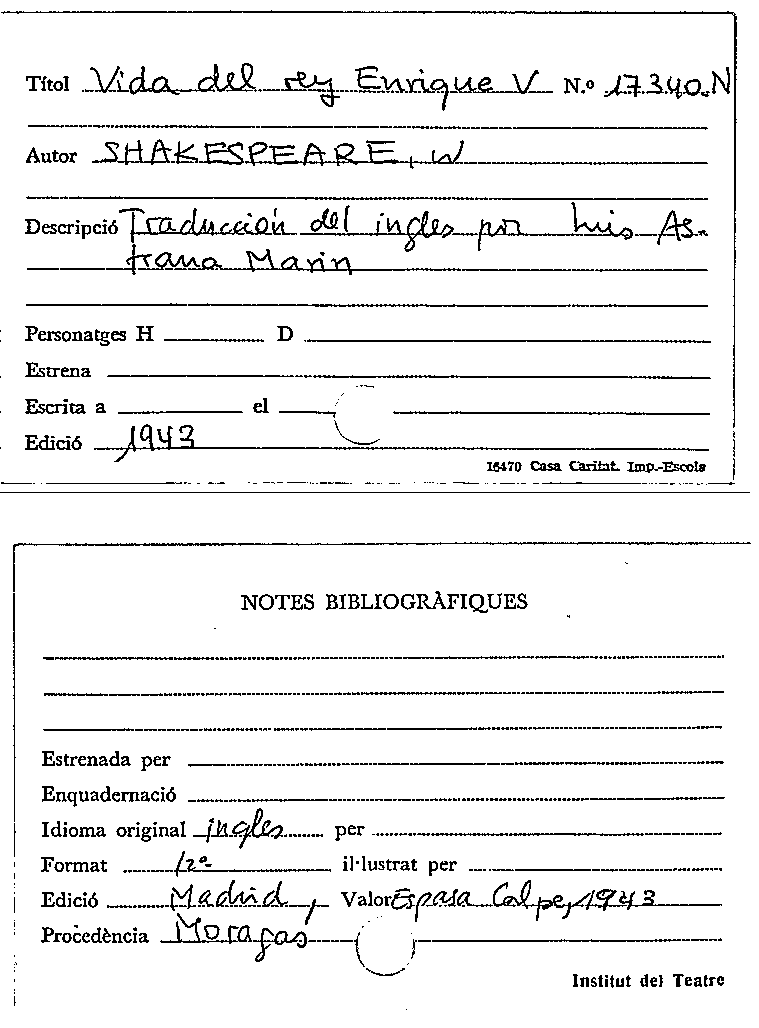 Títol Vida del rey Enrique V N.º 17340.N
Autor SHAKESPEARE, W
Descripció Traducción del ingles por Luis As-
trana Marin
Personatges H D
Estrena
Escrita a el
Edició 1943
16470 Casa Caritat. Imp.-Escola
NOTES BIBLIOGRÀFIQUES
Estrenada per
Enquadernació
Idioma original ingles per
Format 12º il·lustrat per
Edició Madrid, Valor Espasa Calpe, 1943
Procedència Moragas
Institut del Teatre